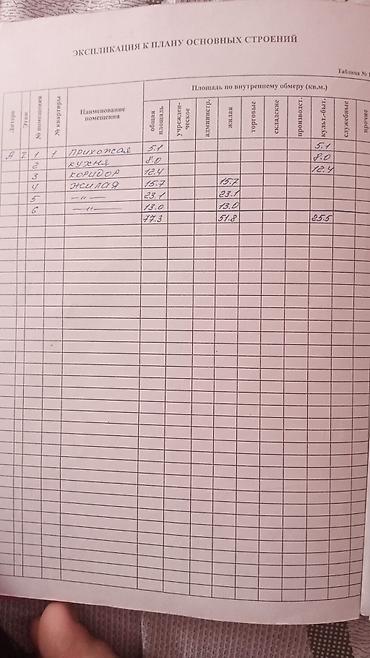 ЭКСПЛИКАЦИЯ К ПЛАНУ ОСНОВНЫХ СТРОЕНИЙ
Таблица № 1
Литера Этаж № помещения № квартиры Наименование помещения Площадь по внутреннему обмеру (кв.м.)
общая площадь учрежден-ческое администр. жилая торговые складские производст. культ.-быт. служебные прочие
А I 1 1 прихожая 5.1 5.1
2 кухня 8.0 8.0
3 коридор 12.4 12.4
4 жилая 15.7 15.7
5 —〃— 23.1 23.1
6 —〃— 13.0 13.0
77.3 51.8 25.5